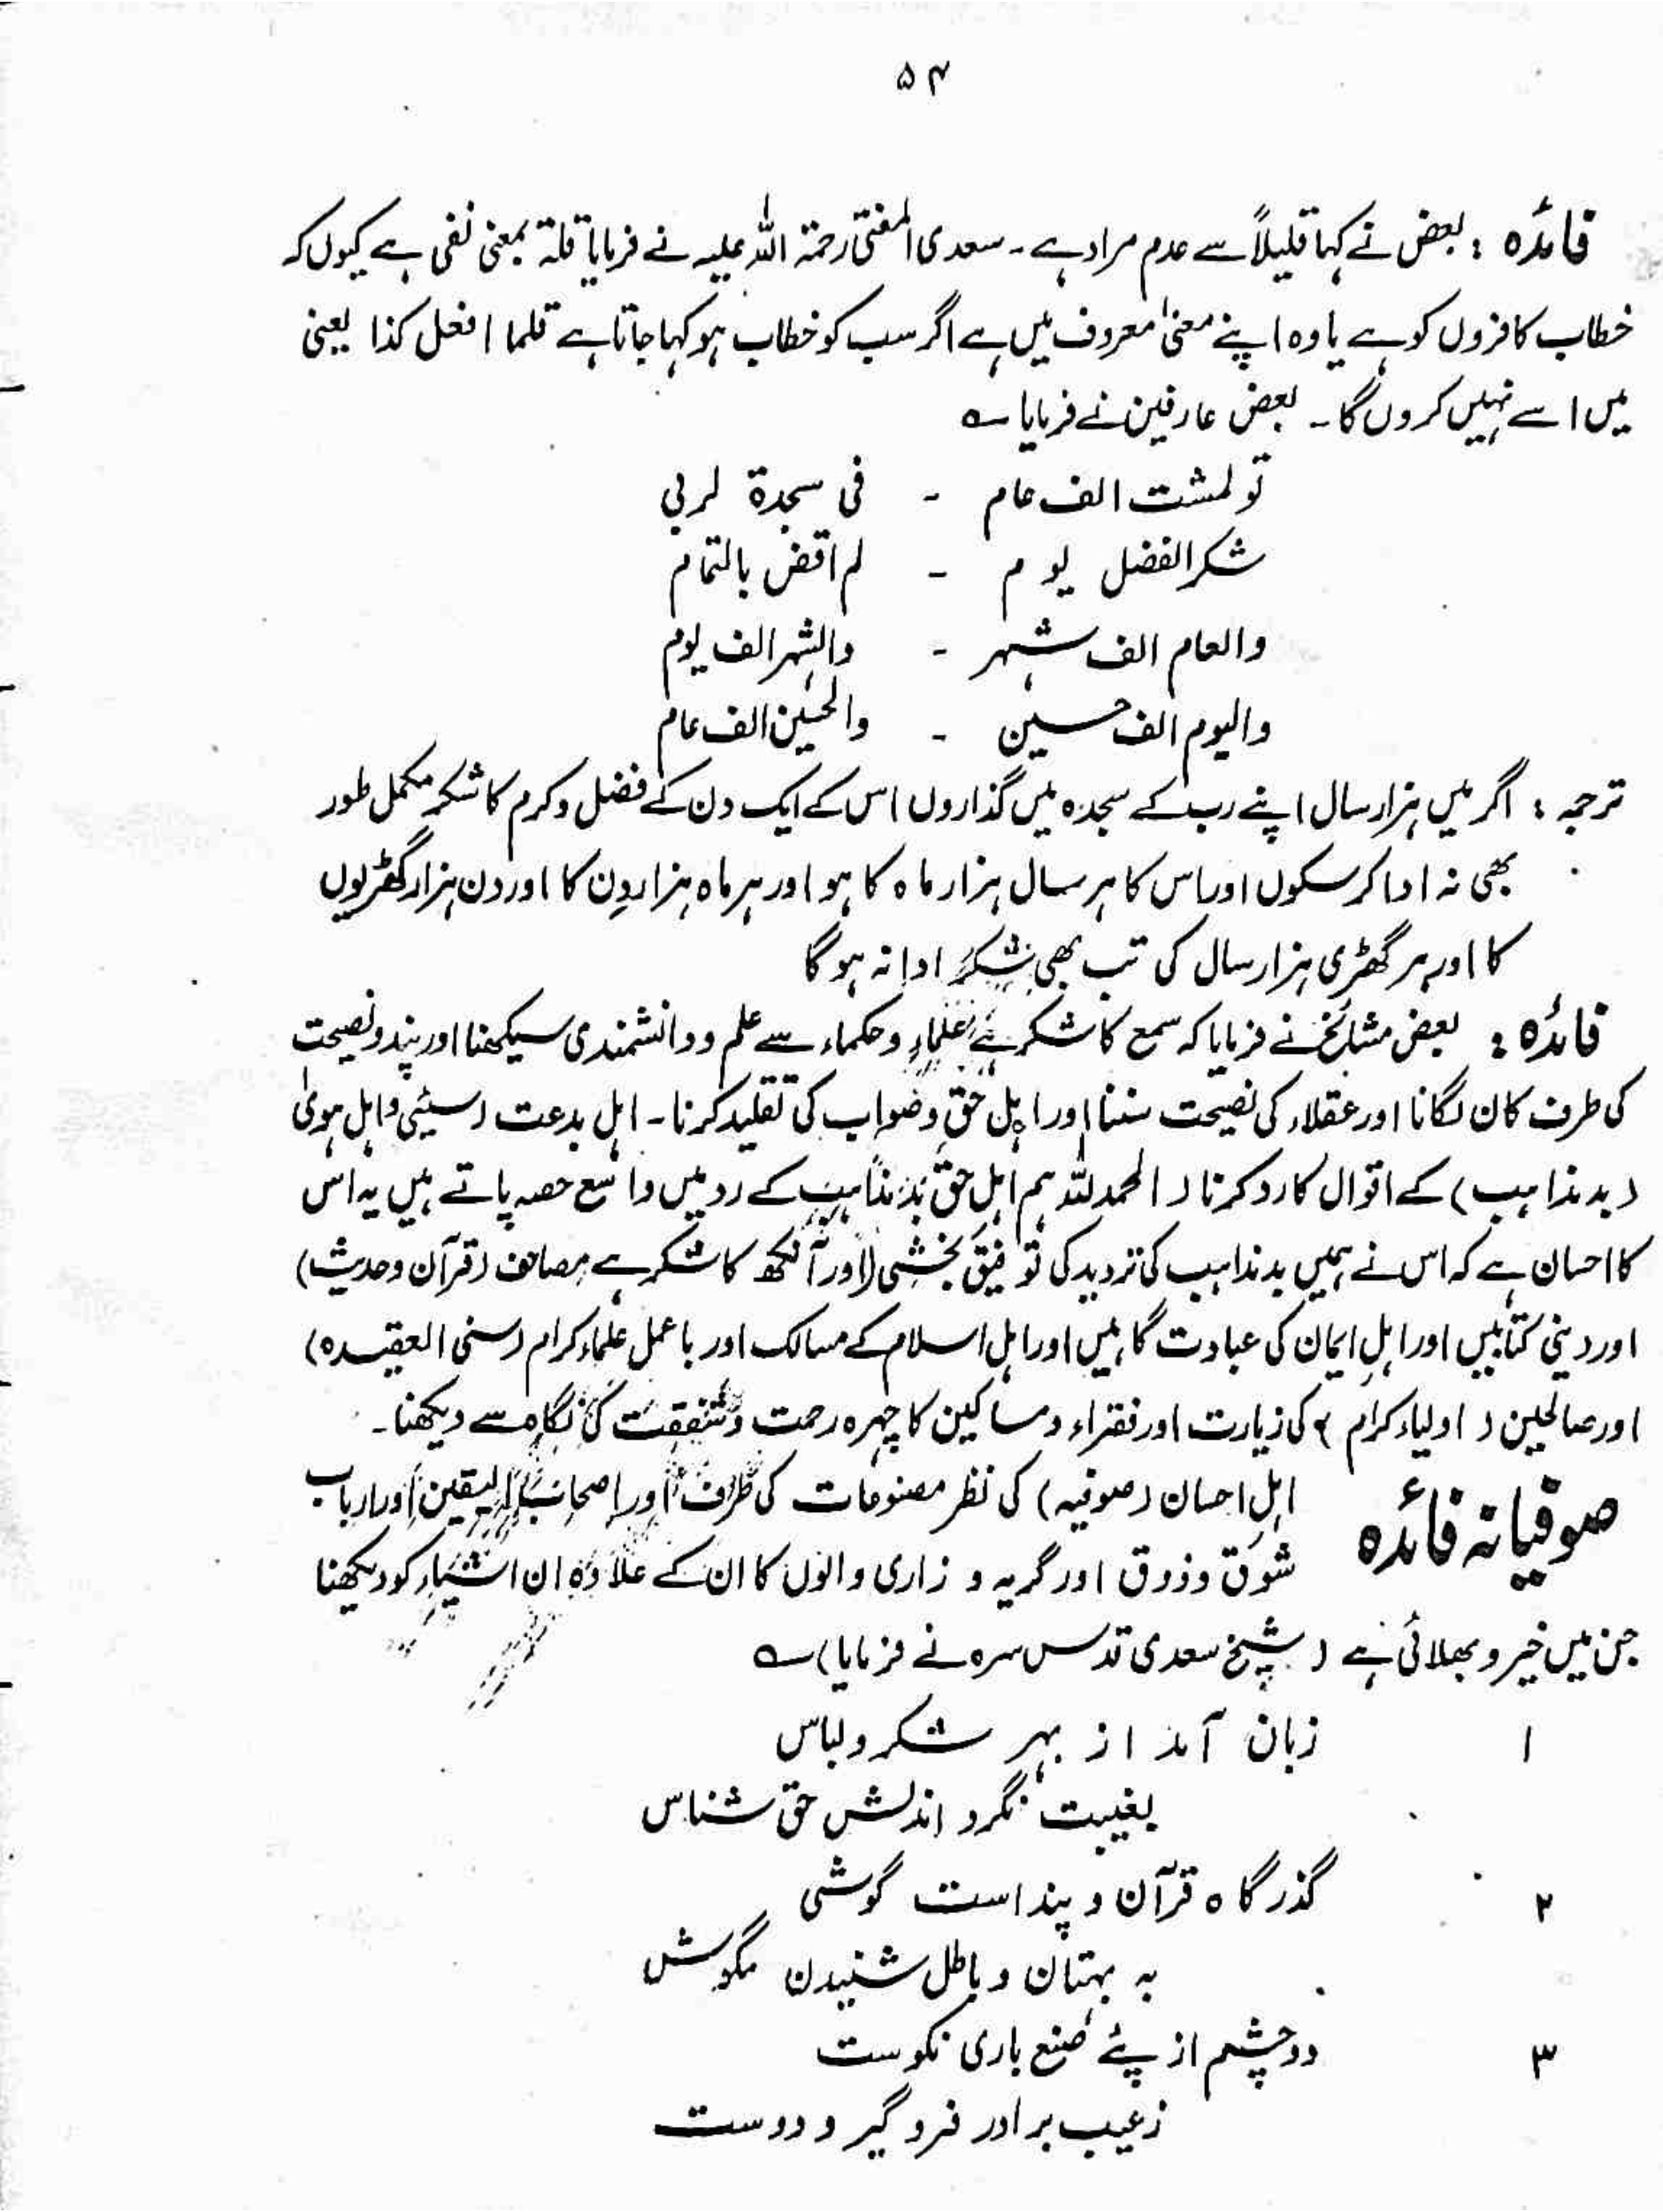 ۵۴
فائدہ : بعض نے کہا قلیلاً سے عدم مراد ہے ۔ سعدی المفتی رحمۃ اللہ علیہ نے فرمایا قلۃ بمعنی نفی ہے کیوں کہ
خطاب کافروں کو ہے یا وہ اپنے معنیٰ معروف میں ہے اگر سب کو خطاب ہو کہا جاتا ہے قلما افعل کذا یعنی
میں اسے نہیں کروں گا ۔ بعض عارفین نے فرمایا ؎
تو لمشت الف عام - فی سجدۃ لربی
شکر الفضل یوم - لم اقض بالتمام
والعام الف شہر - والشہر الف یوم
والیوم الف حسین - والحین الف عام
ترجمہ : اگر میں ہزار سال اپنے رب کے سجدہ میں گذاروں اس کے ایک دن کے فضل و کرم کا شکر مکمل طور
بھی نہ ادا کر سکوں اور اس کا ہر سال ہزار ماہ کا ہو اور ہر ماہ ہزار دن کا اور دن ہزار گھڑیوں
کا اور ہر گھڑی ہزار سال کی تب بھی شکر ادا نہ ہو گا
فائدہ : بعض مشائخ نے فرمایا کہ سمع کا شکر ہے علماء و حکماء سے علم و دانشمندی سیکھنا اور پند و نصیحت
کی طرف کان لگانا اور عقلاء کی نصیحت سننا اور اہل حق و صواب کی تقلید کرنا ۔ اہل بدعت (سیئی و اہل ہویٰ
(بد مذاہب) کے اقوال کا رد کرنا ( الحمد للہ ہم اہل حق بد مذاہب کے رد میں واسع حصہ پاتے ہیں یہ اس
کا احسان ہے کہ اس نے ہمیں بد مذاہب کی تردید کی توفیق بخشی (اور آنکھ کا شکر ہے مصاحف (قرآن و حدیث)
اور دینی کتابیں اور اہلِ ایمان کی عبادت گاہیں اور اہل اسلام کے مسالک اور باعمل علماء کرام (سنی العقیدہ)
اور صالحین ( اولیاء کرام ) کی زیارت اور فقراء و مساکین کا چہرہ رحمت و شفقت کی نگاہ سے دیکھنا ۔
صوفیانہ فائدہ اہلِ احسان (صوفیہ) کی نظر مصنوعات کی طرف اور اصحاب الیقین اور ارباب
شوق و ذوق اور گریہ و زاری والوں کا ان کے علاوہ ان اشیاء کو دیکھنا
جن میں خیر و بھلائی ہے ( شیخ سعدی قدس سرہ نے فرمایا) ؎
۱ زبان آمد از بہر شکر و لباس
بغیبت نگرد اندلش حق شناس
۲ گذرگاہ قرآن و پند است گوشی
بہ بہتان و باطل شنیدن مگوش
۳ دو چشم از پئے صنع باری نکوست
زعیب برادر فرو گیر و دوست